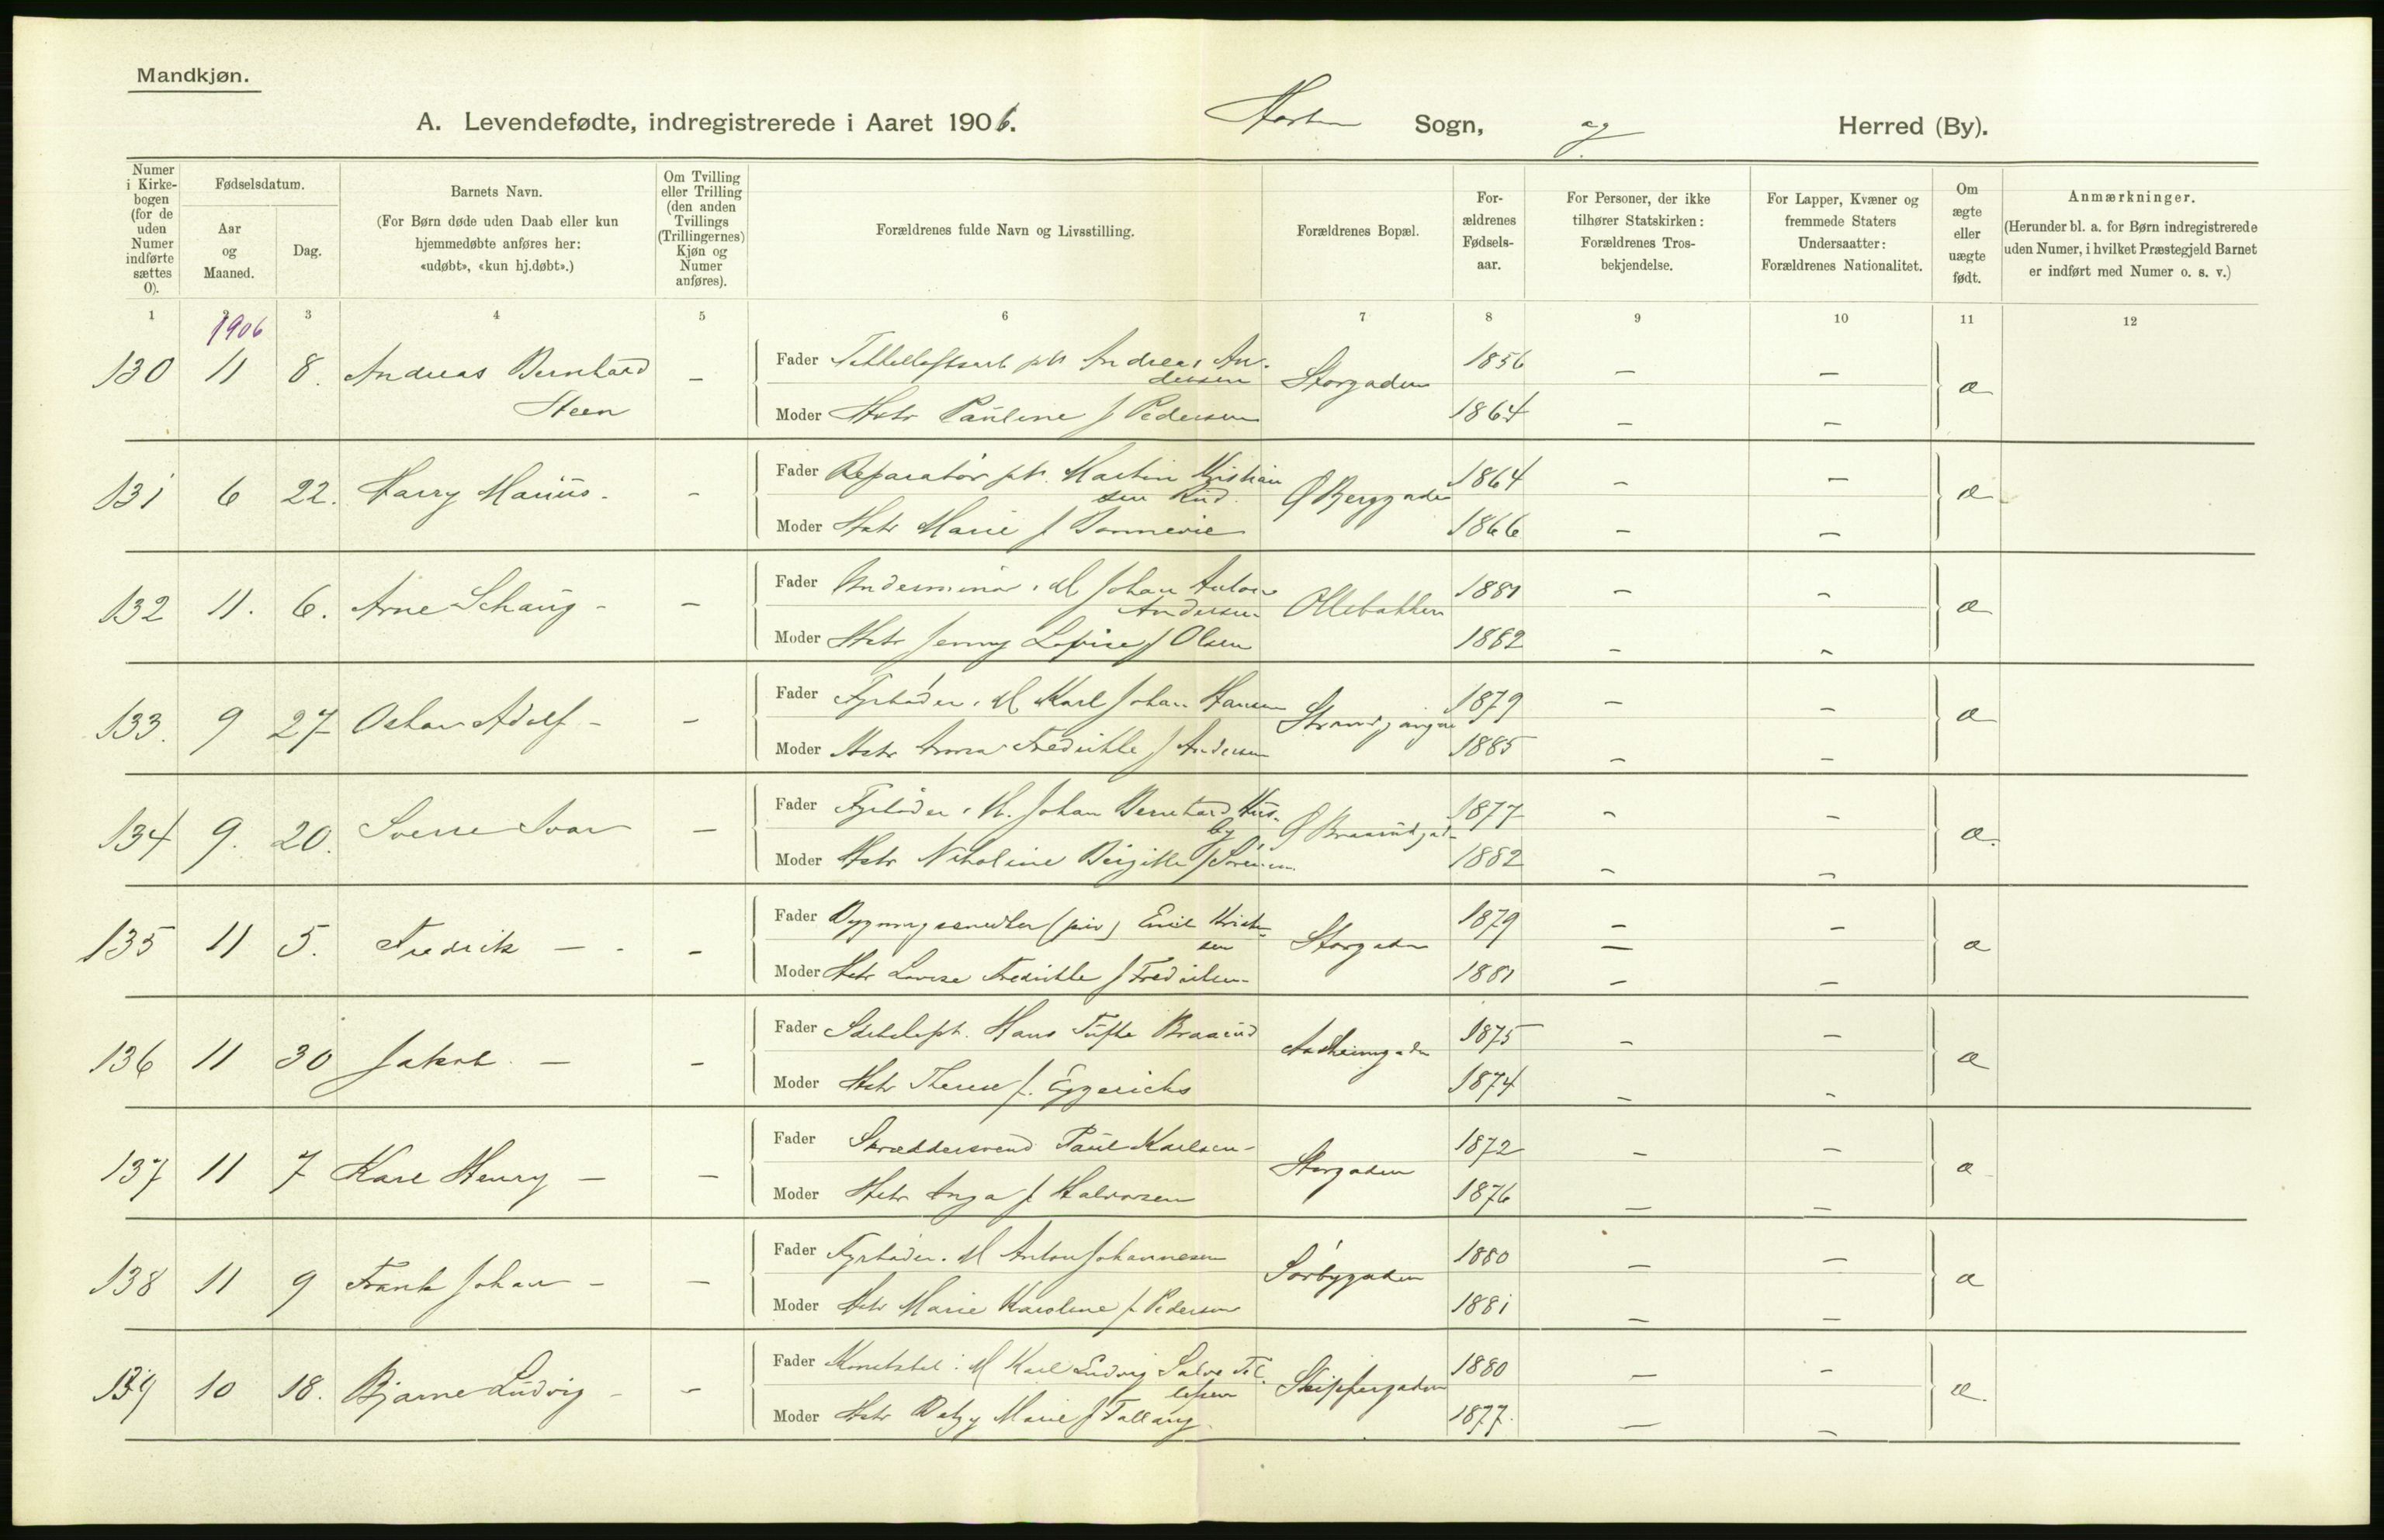 Mandkjøn.
A. Levendefødte, indregistrerede i Aaret 1906. Horten Sogn, og Herred (By).
Numer i Kirkebogen (for de uden Numer indførte sættes 0).
Fødselsdatum.
Aar og Maaned.
Dag.
Barnets Navn.
(For Børn døde uden Daab eller kun hjemmedøbte anføres her: «udøbt», «kun hj.døbt».)
Om Tvilling eller Trilling (den anden Tvillings (Trillingernes) Kjøn og Numer anføres).
Forældrenes fulde Navn og Livsstilling.
Forældrenes Bopæl.
Forældrenes Fødselsaar.
For Personer, der ikke tilhører Statskirken: Forældrenes Trosbekjendelse.
For Lapper, Kvæner og fremmede Staters Undersaatter: Forældrenes Nationalitet.
Om ægte eller uægte født.
Anmærkninger.
(Herunder bl. a. for Børn indregistrerede uden Numer, i hvilket Præstegjeld Barnet er indført med Numer o. s. v.)
1 2 3 4 5 6 7 8 9 10 11 12
1906
130 11 8. Andreas Bernhard Steen – Fader Andreas Andersen Storgaden 1856 – – æ
Moder Hstr Pauline f Pedersen 1864 – –
131 6 22. Harry Marius – – Fader Reparatør Martin Kristiansen Rud Ø Berggaden 1864 – – æ
Moder Hstr Marie f Bonnevie 1866 – –
132 11. 6. Arne Schaug – – Fader Underminør i M Johan Anton Andersen Ollebakken 1881 – – æ
Moder Hstr Jenny Lovise f Olsen 1882 – –
133. 9 27 Oskar Adolf – – Fader Fyrbøder i M Karl Johan Hansen 1879 – – æ
Moder Hstr Anna Fredrikke f Andersen 1885 – –
134 9. 20. Sverre Ivar – Fader Fyrbøder i M. Johan Bernhard Husby Ø Braarudgad 1877 – – æ.
Moder Hstr Nikoline Birgitte f Sørensen 1882 – –
135 11 5. Fredrik – – Fader Bygningssnedker (priv) Emil Kristensen Storgaden 1879 – – æ
Moder Hstr Lovise Fredrikke f Fredriksen 1881 – –
136 11 30 Jakob – – Fader Hans Tufte Braarud 1875 – – æ
Moder Hstr Therese f. Eggerichs 1874 – –
137 11 7 Kare Henry – – Fader Skræddersvend Paul Karlsen Storgaden 1872 – – æ
Moder Hstr Inga f. Halvorsen 1876 – –
138 11 9 Frank Johan – – Fader Fyrbøder i M Anton Johannesen Sørbygaden 1880 – – æ
Moder Hstr Marie Karoline f. Pedersen 1881 – –
139 10 18. Bjarne Ludvig – – Fader i M Karl Ludvig Salve Skippergaden 1880 – – æ.
Moder Hstr Marie f 1877. – –